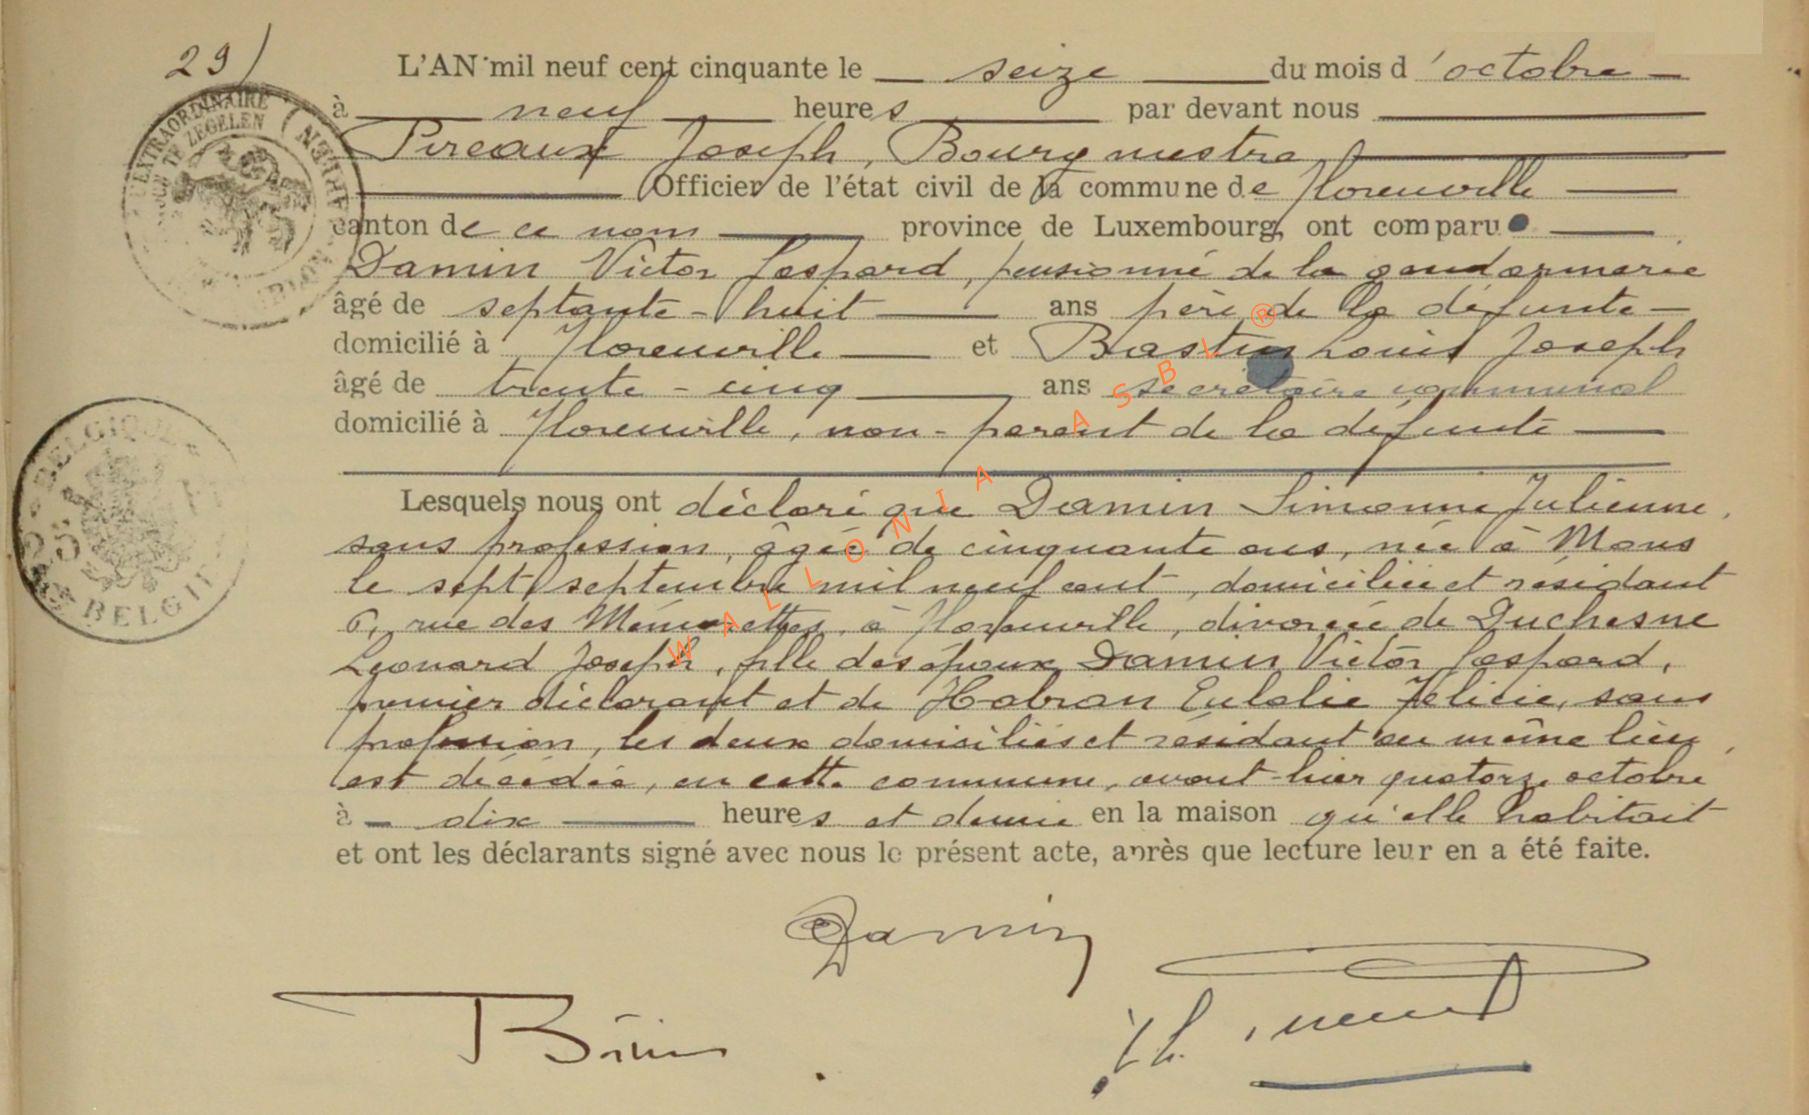 29)
L'AN mil neuf cent cinquante le seize du mois d'octobre
à neuf heures par devant nous
Pireaux Joseph, Bourgmestre
Officier de l'état civil de la commune de Florenville
canton de ce nom province de Luxembourg, ont comparu
Damin Victor Gaspard, pensionné de la gendarmerie
âgé de septante-huit ans père de la défunte
domicilié à Florenville et Bastin Louis Joseph
âgé de trente-cinq ans secrétaire communal
domicilié à Florenville, non-parent de la défunte
Lesquels nous ont déclaré que Damin Simonne Julienne,
sans profession, âgée de cinquante ans, née à Mons
le sept septembre mil neuf cent, domiciliée et résidant
6, rue des à Florenville, divorcée de Duchesne
Léonard Joseph, fille des époux Damin Victor Gaspard,
premier déclarant et de Habran Eulalie Félicie, sans
profession, les deux domiciliés et résidant au même lieu,
est décédée, en cette commune, avant-hier quatorze octobre
à dix heures et demie en la maison qu'elle habitait
et ont les déclarants signé avec nous le présent acte, après que lecture leur en a été faite.
Damin
EXTRAORDINAIRE
TE ZEGELEN
BELGIQUE
BELGIE
WALLONIA ASBL ®